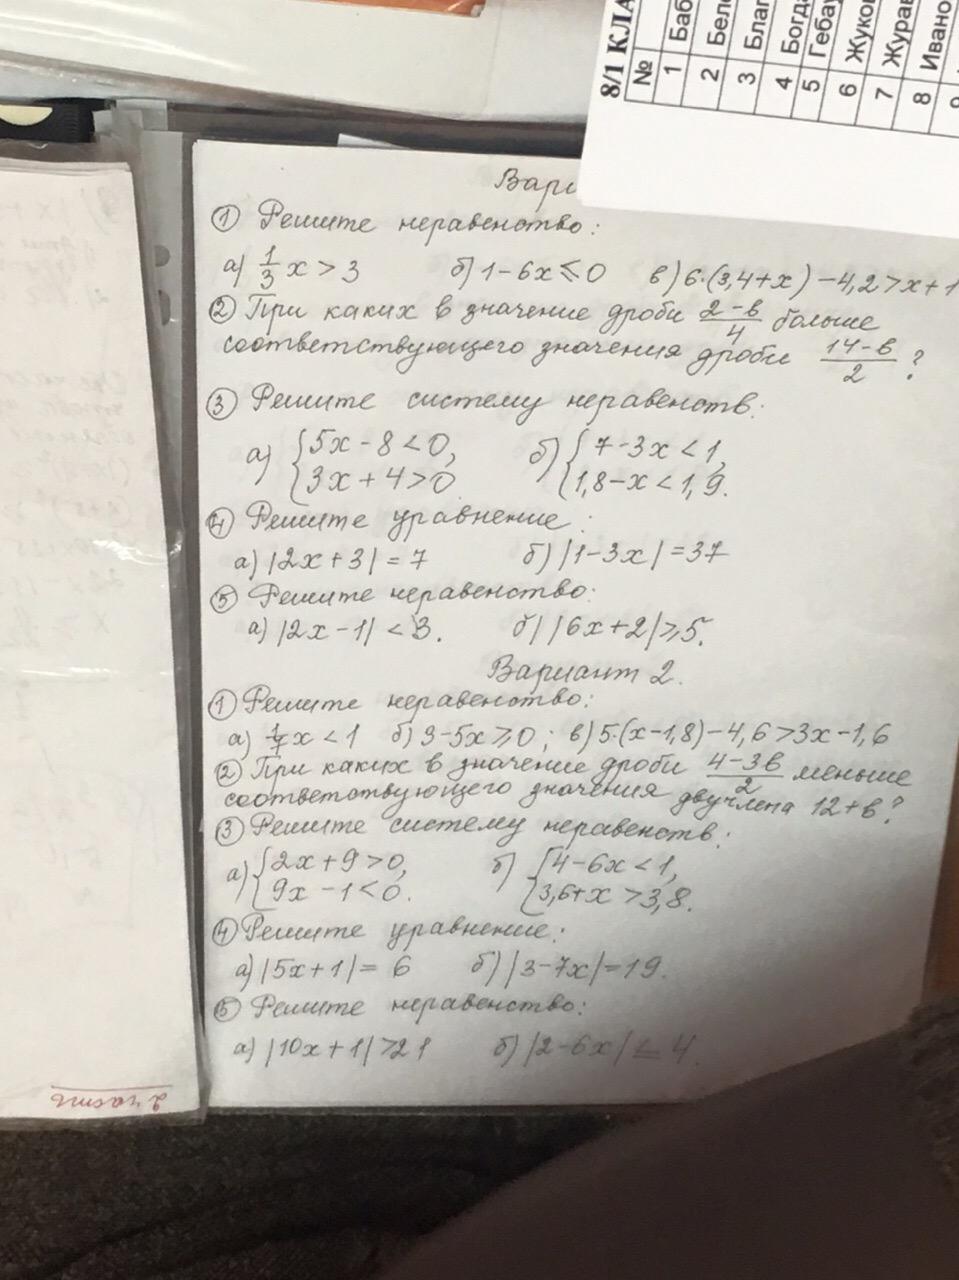 8/1 КЛА
№
1 Баб
2 Бел
3 Благ
4 Богда
5 Геба
6 Жуко
7 Журав
8 Ивано
9
Вари
① Решите неравенство:
а) 1/3 x > 3 б) 1-6x ≤ 0 в) 6·(3,4+x) -4,2 > x+1
② При каких в значение дроби (2-в)/4 больше
соответствующего значения дроби (14-в)/2 ?
③ Решите систему неравенств:
а) { 5x-8<0, б) { 7-3x<1,
3x+4>0 1,8-x<1,9.
④ Решите уравнение:
а) |2x+3| = 7 б) |1-3x| = 37
⑤ Решите неравенство:
а) |2x-1| < 3. б) |6x+2| ≥ 5.
Вариант 2.
① Решите неравенство:
а) 1/7 x < 1 б) 3-5x ≥ 0; в) 5·(x-1,8) -4,6 > 3x-1,6
② При каких в значение дроби (4-3в)/2 меньше
соответствующего значения двучлена 12+в?
③ Решите систему неравенств:
а) { 2x+9>0, б) { 4-6x<1,
9x-1<0. 3,6+x>3,8.
④ Решите уравнение:
а) |5x+1| = 6 б) |3-7x| = 19.
⑤ Решите неравенство:
а) |10x+1| > 21 б) |2-6x| ≤ 4.
2 часть